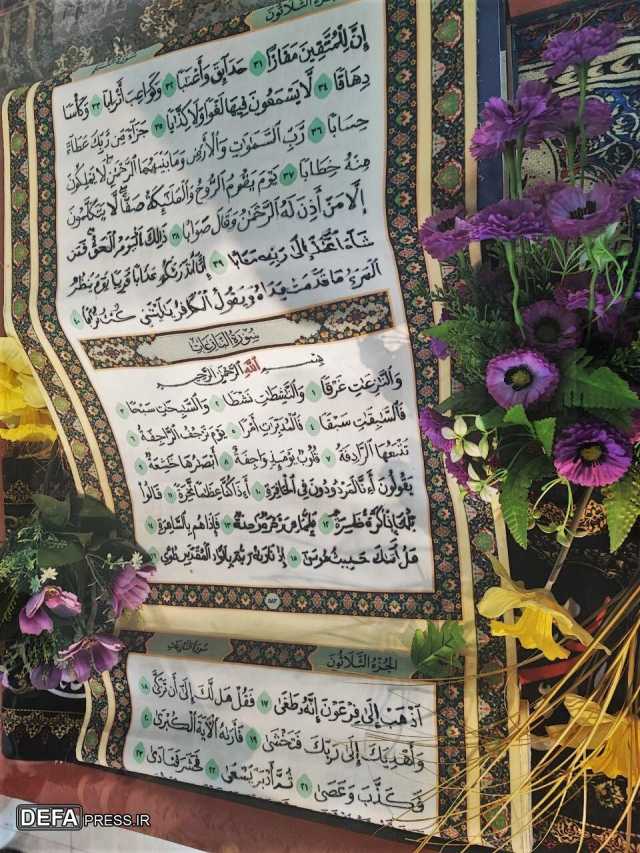 الجزء الثلاثون
إِنَّ لِلْمُتَّقِينَ مَفَازًا ٣١ حَدَائِقَ وَأَعْنَابًا ٣٢ وَكَوَاعِبَ أَتْرَابًا ٣٣ وَكَأْسًا
دِهَاقًا ٣٤ لَا يَسْمَعُونَ فِيهَا لَغْوًا وَلَا كِذَّابًا ٣٥ جَزَاءً مِنْ رَبِّكَ عَطَاءً
حِسَابًا ٣٦ رَبِّ السَّمَوَاتِ وَالْأَرْضِ وَمَا بَيْنَهُمَا الرَّحْمَنِ لَا يَمْلِكُونَ
مِنْهُ خِطَابًا ٣٧ يَوْمَ يَقُومُ الرُّوحُ وَالْمَلَائِكَةُ صَفًّا لَا يَتَكَلَّمُونَ
إِلَّا مَنْ أَذِنَ لَهُ الرَّحْمَنُ وَقَالَ صَوَابًا ٣٨ ذَلِكَ الْيَوْمُ الْحَقُّ فَمَنْ
شَاءَ اتَّخَذَ إِلَى رَبِّهِ مَآبًا ٣٩ إِنَّا أَنْذَرْنَاكُمْ عَذَابًا قَرِيبًا يَوْمَ يَنْظُرُ
الْمَرْءُ مَا قَدَّمَتْ يَدَاهُ وَيَقُولُ الْكَافِرُ يَا لَيْتَنِي كُنْتُ تُرَابًا ٤٠
سُورَةُ النَّازِعَاتِ
بِسْمِ اللَّهِ الرَّحْمَنِ الرَّحِيمِ
وَالنَّازِعَاتِ غَرْقًا ١ وَالنَّاشِطَاتِ نَشْطًا ٢ وَالسَّابِحَاتِ سَبْحًا ٣
فَالسَّابِقَاتِ سَبْقًا ٤ فَالْمُدَبِّرَاتِ أَمْرًا ٥ يَوْمَ تَرْجُفُ الرَّاجِفَةُ ٦
تَتْبَعُهَا الرَّادِفَةُ ٧ قُلُوبٌ يَوْمَئِذٍ وَاجِفَةٌ ٨ أَبْصَارُهَا خَاشِعَةٌ ٩
يَقُولُونَ أَإِنَّا لَمَرْدُودُونَ فِي الْحَافِرَةِ ١٠ أَإِذَا كُنَّا عِظَامًا نَخِرَةً ١١ قَالُوا
تِلْكَ إِذًا كَرَّةٌ خَاسِرَةٌ ١٢ فَإِنَّمَا هِيَ زَجْرَةٌ وَاحِدَةٌ ١٣ فَإِذَا هُمْ بِالسَّاهِرَةِ ١٤
هَلْ أَتَاكَ حَدِيثُ مُوسَى ١٥ إِذْ نَادَاهُ رَبُّهُ بِالْوَادِ الْمُقَدَّسِ طُوًى ١٦
٥٨٣
الجزء الثلاثون
سورة النازعات
اذْهَبْ إِلَى فِرْعَوْنَ إِنَّهُ طَغَى ١٧ فَقُلْ هَلْ لَكَ إِلَى أَنْ تَزَكَّى ١٨
وَأَهْدِيَكَ إِلَى رَبِّكَ فَتَخْشَى ١٩ فَأَرَاهُ الْآيَةَ الْكُبْرَى ٢٠
فَكَذَّبَ وَعَصَى ٢١ ثُمَّ أَدْبَرَ يَسْعَى ٢٢ فَحَشَرَ فَنَادَى ٢٣
DEFAPRESS.IR